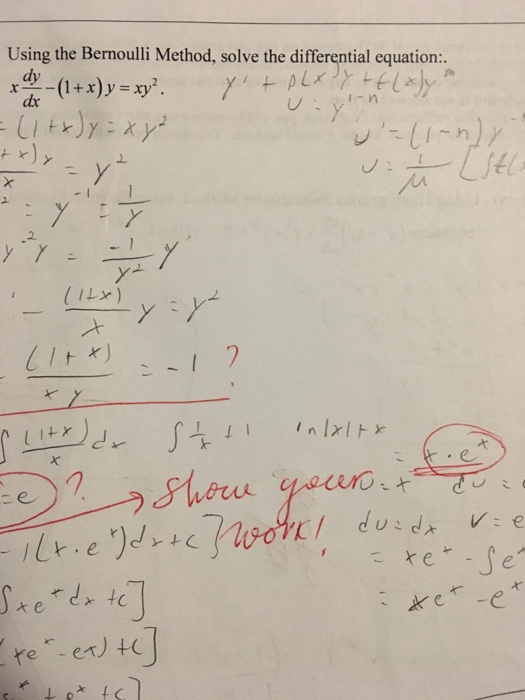 Using the Bernoulli Method, solve the differential equation:.
x dy/dx − (1+x) y = xy².
y' + p(x)y = f(x)y^n
u = y^(1-n)
(1+x)y = xy²
u' = (1-n)y
+x)y / x = y²
u = 1/μ [∫f(
= y^-1 = 1/y
y^-2 y' = -1/y² y'
- (1+x)/x y = y²
(1+x)/xy = -1 ?
∫ (1+x)/x dx ∫ 1/x + 1 ln|x|+x
= x·e^x
=e ? → Show your work!
u = x du =
du = dx v = e
-1(x·e^x)dx+c]
= xe^x - ∫e^x
∫xe^x dx +c]
= xe^x - e^x
(xe^x - e^x) +c]
e^x +c]